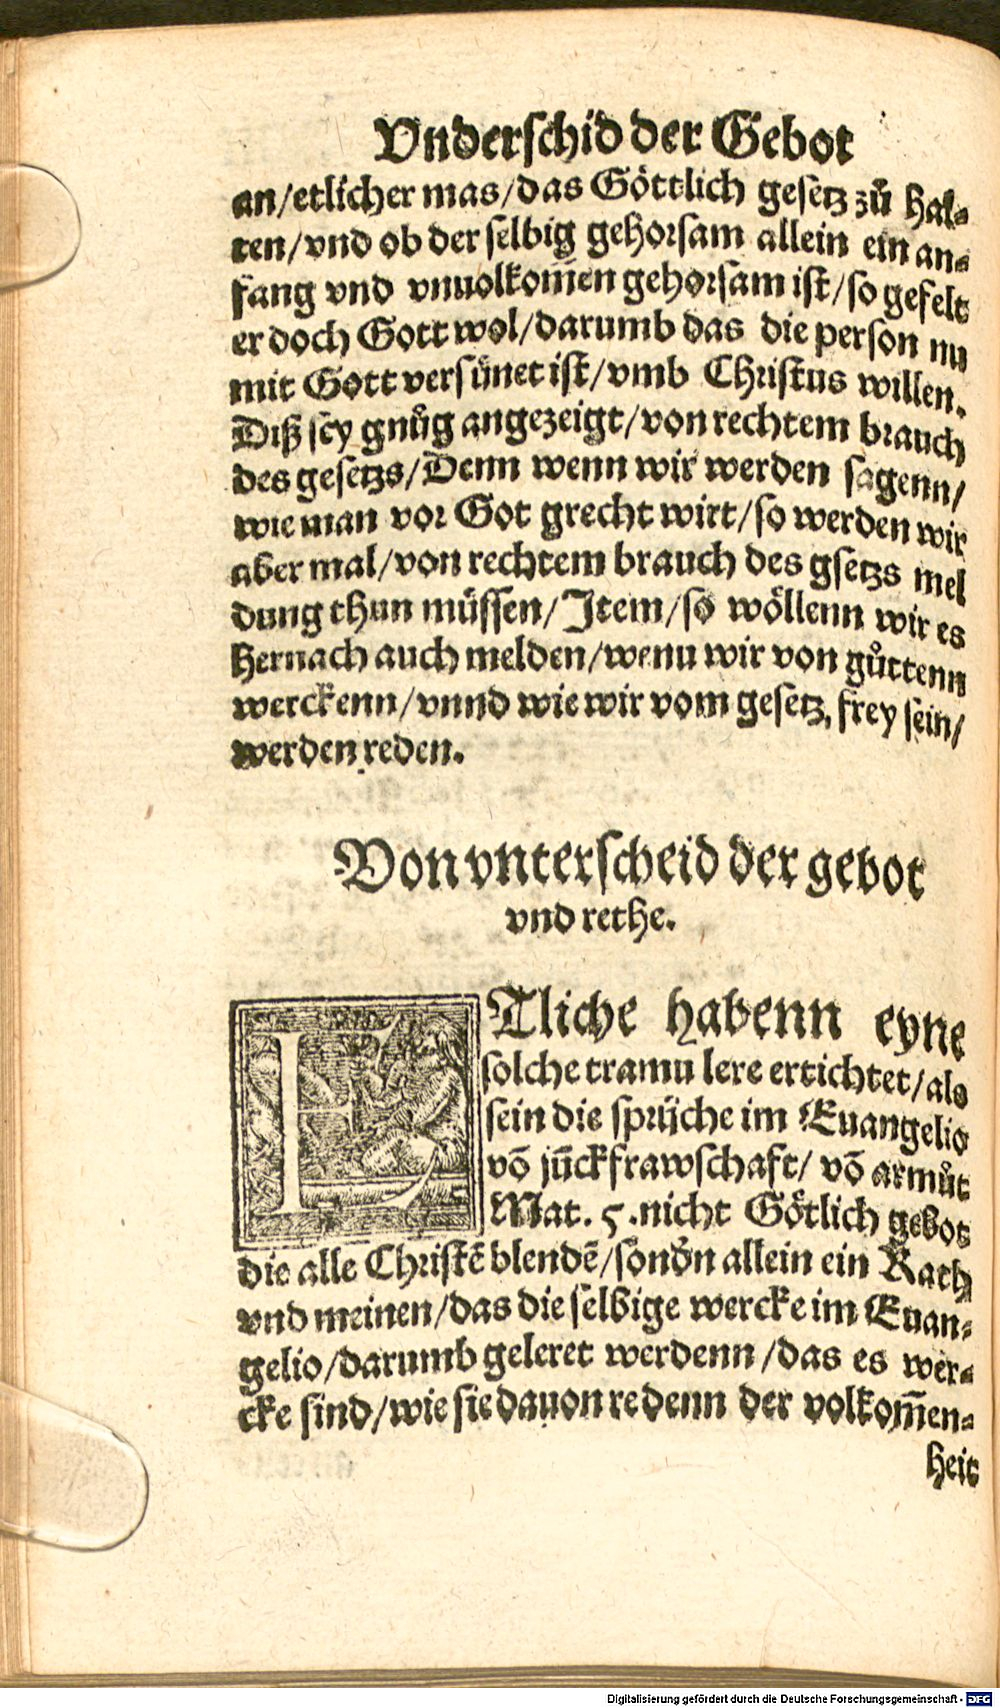 Vnderschid der Gebot
an/etlicher mas/das Göttlich gesetz zuͦ hal⸗
ten/vnd ob der selbig gehorsam allein ein an⸗
fang vnd vnuolkom̄en gehorsam ist/so gefelt
er doch Gott wol/darumb das die person nu
mit Gott versünet ist/vmb Christus willen.
Diß sey gnuͦg angezeigt/von rechtem brauch
des gesetzs/Denn wenn wir werden sagenn/
wie man vor Got grecht wirt/so werden wir
aber mal/von rechtem brauch des gsetzs mel
dung thun müssen/Item/so wöllenn wir es
hernach auch melden/wenu wir von guͦttenn
werckenn/vnnd wie wir vom gesetz, frey sein/
werden reden.
Von vnterscheid der gebot
vnd rethe.
ETliche habenn eyne
solche tramu lere ertichtet/als
sein die sprüche im Euangelio
võ jūckfrawschaft/ võ armuͦt
Mat. 5. nicht Götlich gebot
die alle Christē blendē/sondn̄ allein ein Rath
vnd meinen/das die selbige wercke im Euan⸗
gelio/darumb geleret werdenn/das es wer⸗
cke sind/wie sie dauon redenn der volkom̄en⸗
heit
Digitalisierung gefördert durch die Deutsche Forschungsgemeinschaft - DFG